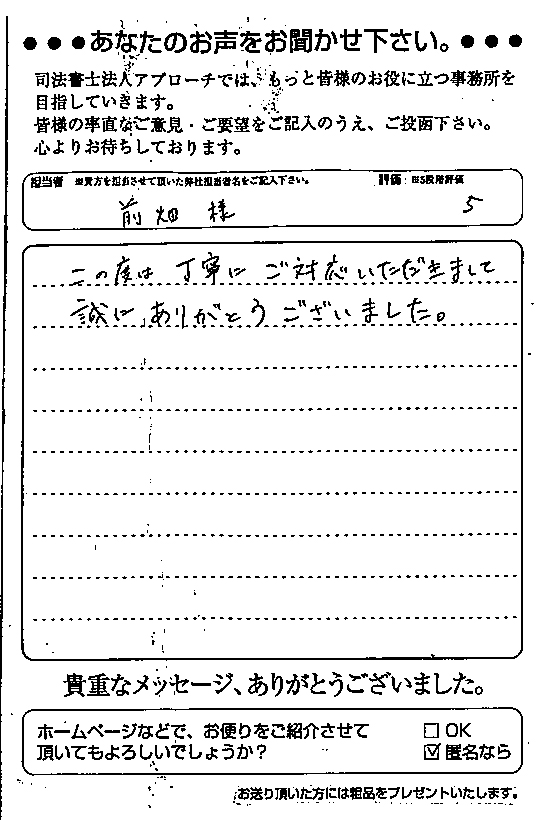 ●●●あなたのお声をお聞かせ下さい。●●●
司法書士法人アプローチでは、もっと皆様のお役に立つ事務所を
目指していきます。
皆様の率直なご意見・ご要望をご記入のうえ、ご投函下さい。
心よりお待ちしております。
担当者 ※貴方を担当させて頂いた弊社担当者名をご記入下さい。 評価：※5段階評価
前畑 様 5
この度は 丁寧に ご対応いただきまして
誠に ありがとう ございました。
貴重なメッセージ、ありがとうございました。
ホームページなどで、お便りをご紹介させて □ OK
頂いてもよろしいでしょうか？ ☑ 匿名なら
お送り頂いた方には粗品をプレゼントいたします。